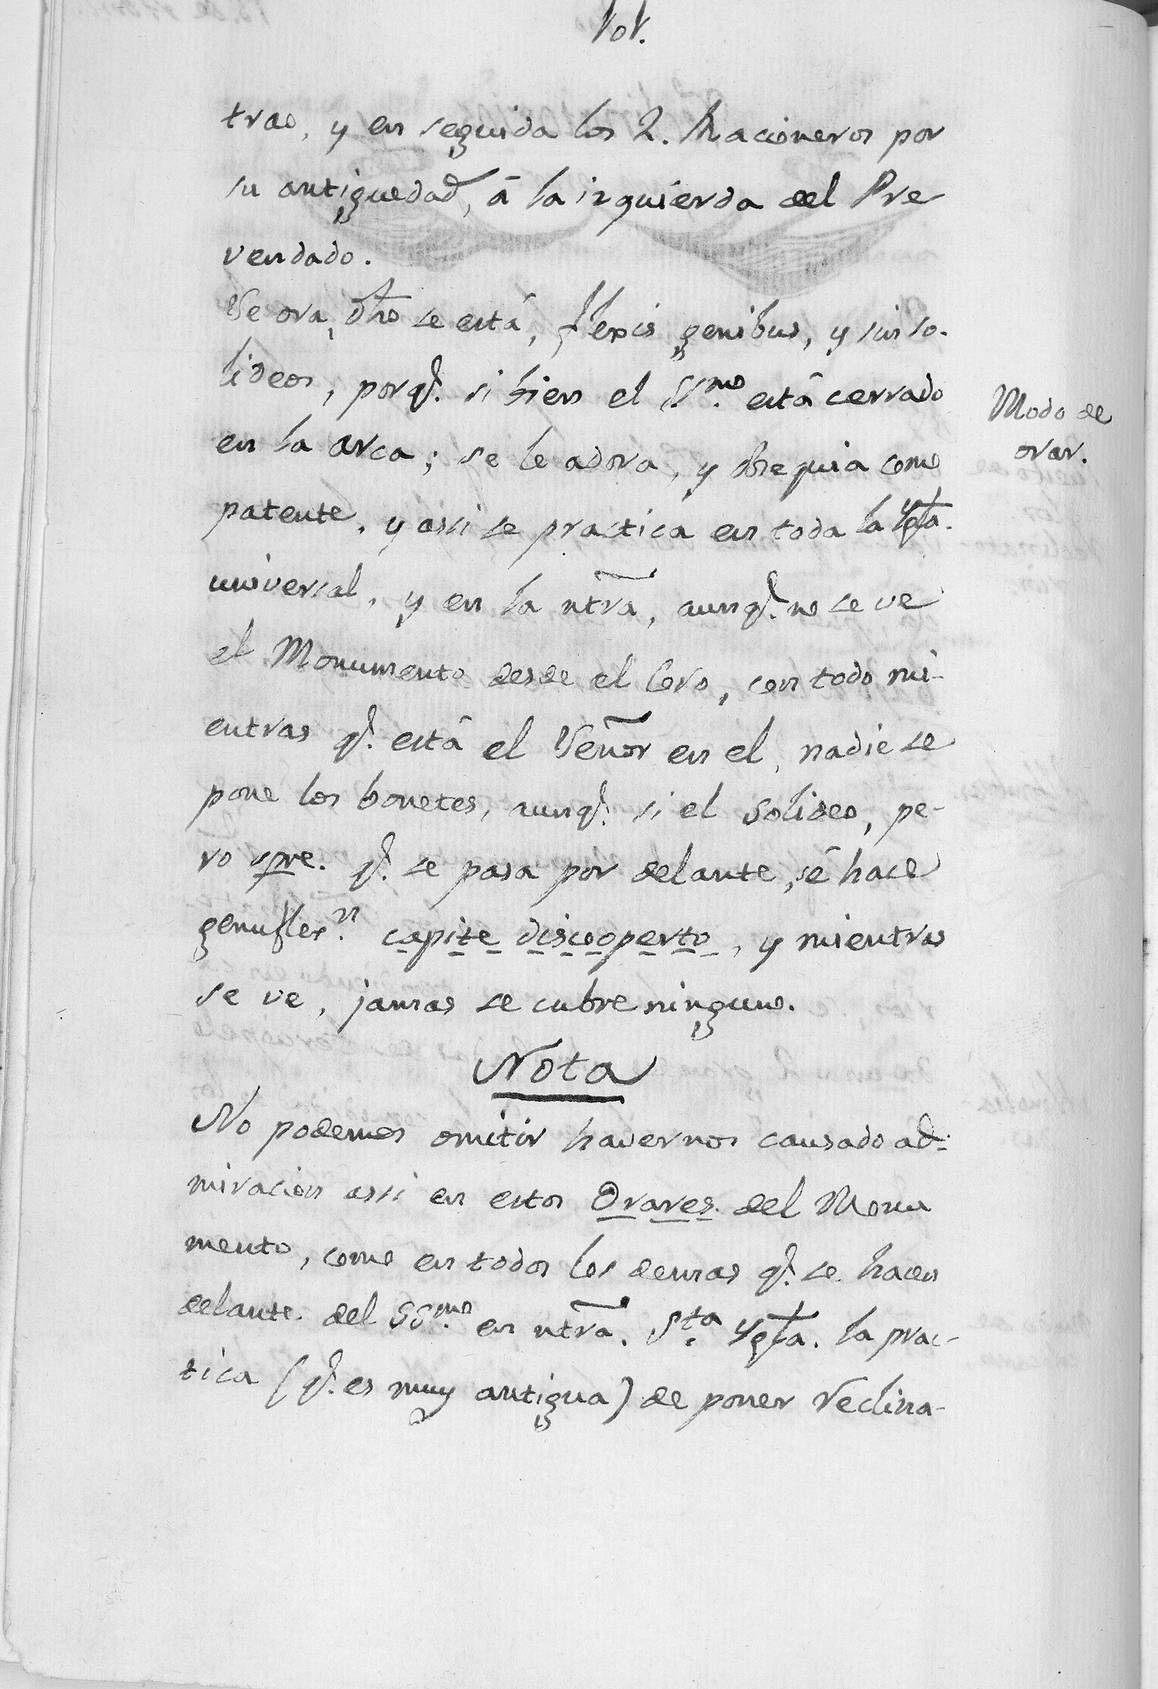 101.
trao, y en seguida los 2. Racioneros por
su antiguedad, â la izquierda del Pre
vendado.
Se ora, dho se está, flexis genibus, y sin so-
lideos, porq. si bien el SSmo. está cerrado
en la arca; se le adora, y obsequia como
patente, y assi se practica en toda la Ygla.
universal, y en la ntra, aunq. no se ve
el Monumento desde el Coro, con todo mi-
entras q. está el Señor en el, nadie se
pone los bonetes, aunq. si el solideo, pe-
ro spre. q. se pasa por delante, se hace
genuflexn. capite discooperto, y mientras
se ve, jamas se cubre ninguno.
Modo de
orar.
Nota
No podemos omitir havernos causado ad-
miracion assi en estos Orares del Monu
mento, como en todos los demas q. se hacen
delante del SSmo. en ntra. Sta Ygla. la prac-
tica (q. es muy antigua) de poner reclina-